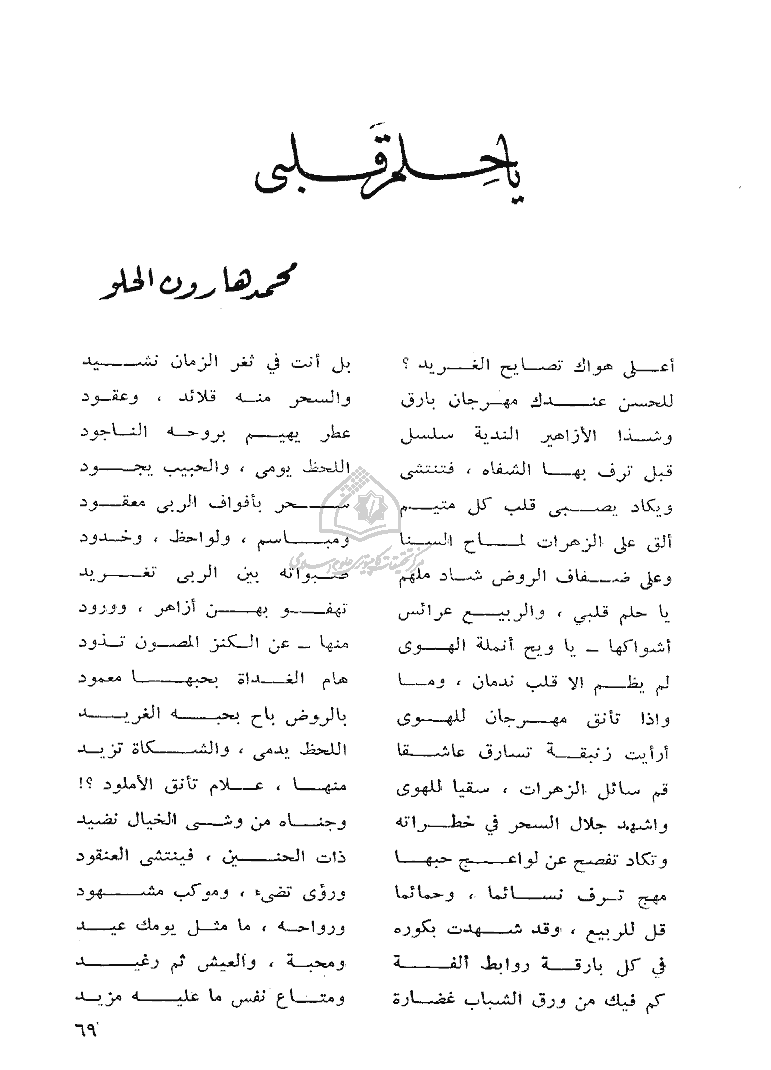 يا حلم قلبي
محمد هارون الحلو
أعلى هواك تصايح الغريد ؟ بل أنت في ثغر الزمان نشيد
للحسن عندك مهرجان بارق والسحر منه قلائد ، وعقود
وشذا الأزاهير الندية سلسل عطر يهيم بروحه الناجود
قبل ترف بها الشفاه ، فتنتشى اللحظ يومى ، والحبيب يجود
ويكاد يصبى قلب كل متيم سحر بأفواف الربى معقود
ألق على الزهرات لماح السنا ومباسم ، ولواحظ ، وخدود
وعلى ضفاف الروض شاد ملهم صبواته بين الربى تغريد
يا حلم قلبي ، والربيع عرائس تهفو بهن أزاهر ، وورود
أشواكها ــ يا ويح أنملة الهوى منها ــ عن الكنز المصون تذود
لم يظم الا قلب ندمان ، وما هام الغداة بحبها معمود
واذا تأنق مهرجان للهوى بالروض باح بحبه الغريد
أرأيت زنبقة تسارق عاشقا اللحظ يدمى ، والشكاة تزيد
قم سائل الزهرات ، سقيا للهوى منها ، علام تأنق الأملود ؟!
واشهد جلال السحر في خطراته وجناه من وشى الخيال نضيد
وتكاد تفصح عن لواعج حبها ذات الحنين ، فينتشى العنقود
مهج ترف نسائما ، وحمائما ورؤى تضىء ، وموكب مشهود
قل للربيع ، وقد شهدت بكوره ورواحه ، ما مثل يومك عيد
في كل بارقة روابط ألفة ومحبة ، والعيش ثم رغيد
كم فيك من ورق الشباب غضارة ومتاع نفس ما عليه مزيد
٦٩